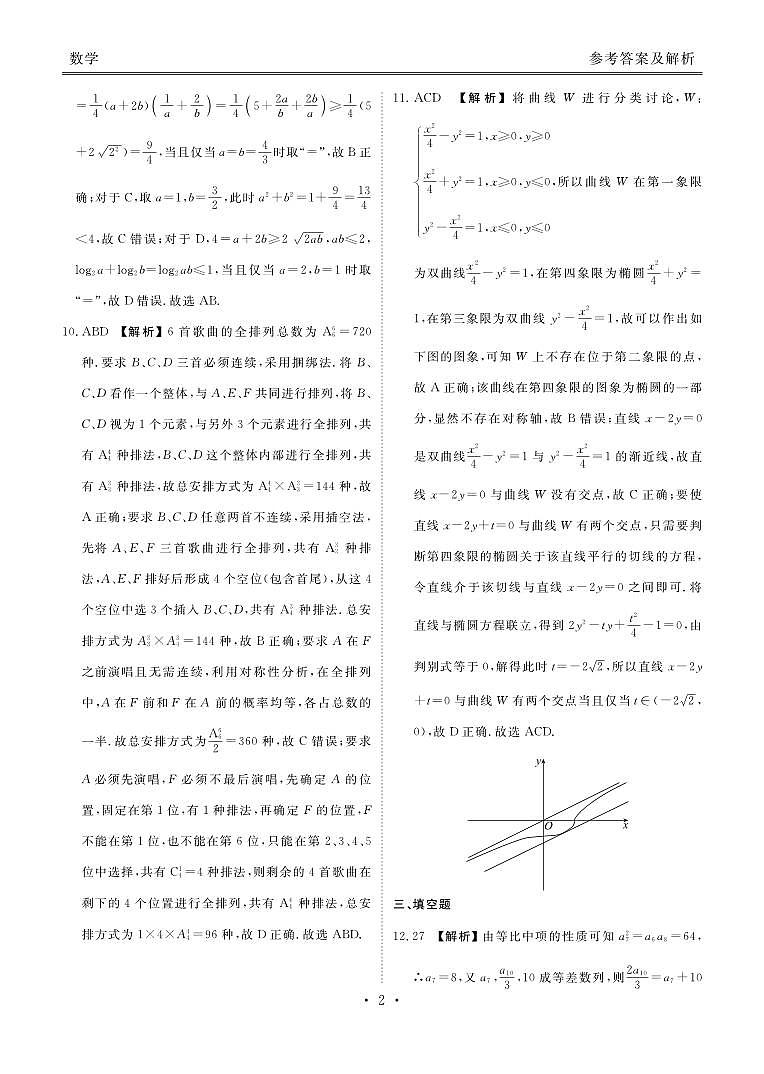 数学
参考答案及解析
=1/4(a+2b)(1/a+2/b)=1/4(5+2a/b+2b/a)≥1/4(5
+2√2²)=9/4,当且仅当a=b=4/3时取“=”,故B正
确;对于C,取a=1,b=3/2,此时a²+b²=1+9/4=13/4
<4,故C错误;对于D,4=a+2b≥2√2ab,ab≤2,
log₂a+log₂b=log₂ab≤1,当且仅当a=2,b=1时取
“=”,故D错误.故选AB.
10. ABD 【解析】6首歌曲的全排列总数为A₆⁶=720
种.要求B、C、D三首必须连续,采用捆绑法.将B、
C、D看作一个整体,与A、E、F共同进行排列,将B、
C、D视为1个元素,与另外3个元素进行全排列,共
有A₄⁴种排法,B、C、D这个整体内部进行全排列,共
有A₃³种排法,故总安排方式为A₄⁴×A₃³=144种,故
A正确;要求B、C、D任意两首不连续,采用插空法,
先将A、E、F三首歌曲进行全排列,共有A₃³种排
法,A、E、F排好后形成4个空位(包含首尾),从这4
个空位中选3个插入B、C、D,共有A₄³种排法.总安
排方式为A₃³×A₄³=144种,故B正确;要求A在F
之前演唱且无需连续,利用对称性分析,在全排列
中,A在F前和F在A前的概率均等,各占总数的
一半.故总安排方式为A₆⁶/2=360种,故C错误;要求
A必须先演唱,F必须不最后演唱,先确定A的位
置,固定在第1位,有1种排法,再确定F的位置,F
不能在第1位,也不能在第6位,只能在第2、3、4、5
位中选择,共有C₄¹=4种排法,则剩余的4首歌曲在
剩下的4个位置进行全排列,共有A₄⁴种排法,总安
排方式为1×4×A₄⁴=96种,故D正确.故选ABD.
11. ACD 【解析】将曲线W进行分类讨论,W:
x²/4-y²=1,x≥0,y≥0
x²/4+y²=1,x≥0,y≤0,所以曲线W在第一象限
y²-x²/4=1,x≤0,y≤0
为双曲线x²/4-y²=1,在第四象限为椭圆x²/4+y²=
1,在第三象限为双曲线y²-x²/4=1,故可以作出如
下图的图象,可知W上不存在位于第二象限的点,
故A正确;该曲线在第四象限的图象为椭圆的一部
分,显然不存在对称轴,故B错误;直线x-2y=0
是双曲线x²/4-y²=1与y²-x²/4=1的渐近线,故直
线x-2y=0与曲线W没有交点,故C正确;要使
直线x-2y+t=0与曲线W有两个交点,只需要判
断第四象限的椭圆关于该直线平行的切线的方程,
令直线介于该切线与直线x-2y=0之间即可.将
直线与椭圆方程联立,得到2y²-ty+t²/4-1=0,由
判别式等于0,解得此时t=-2√2,所以直线x-2y
+t=0与曲线W有两个交点当且仅当t∈(-2√2,
0),故D正确.故选ACD.
y
O
x
三、填空题
12. 27 【解析】由等比中项的性质可知a₇²=a₆a₈=64,
∴a₇=8,又a₇,a₁₀/3,10成等差数列,则2a₁₀/3=a₇+10
· 2 ·